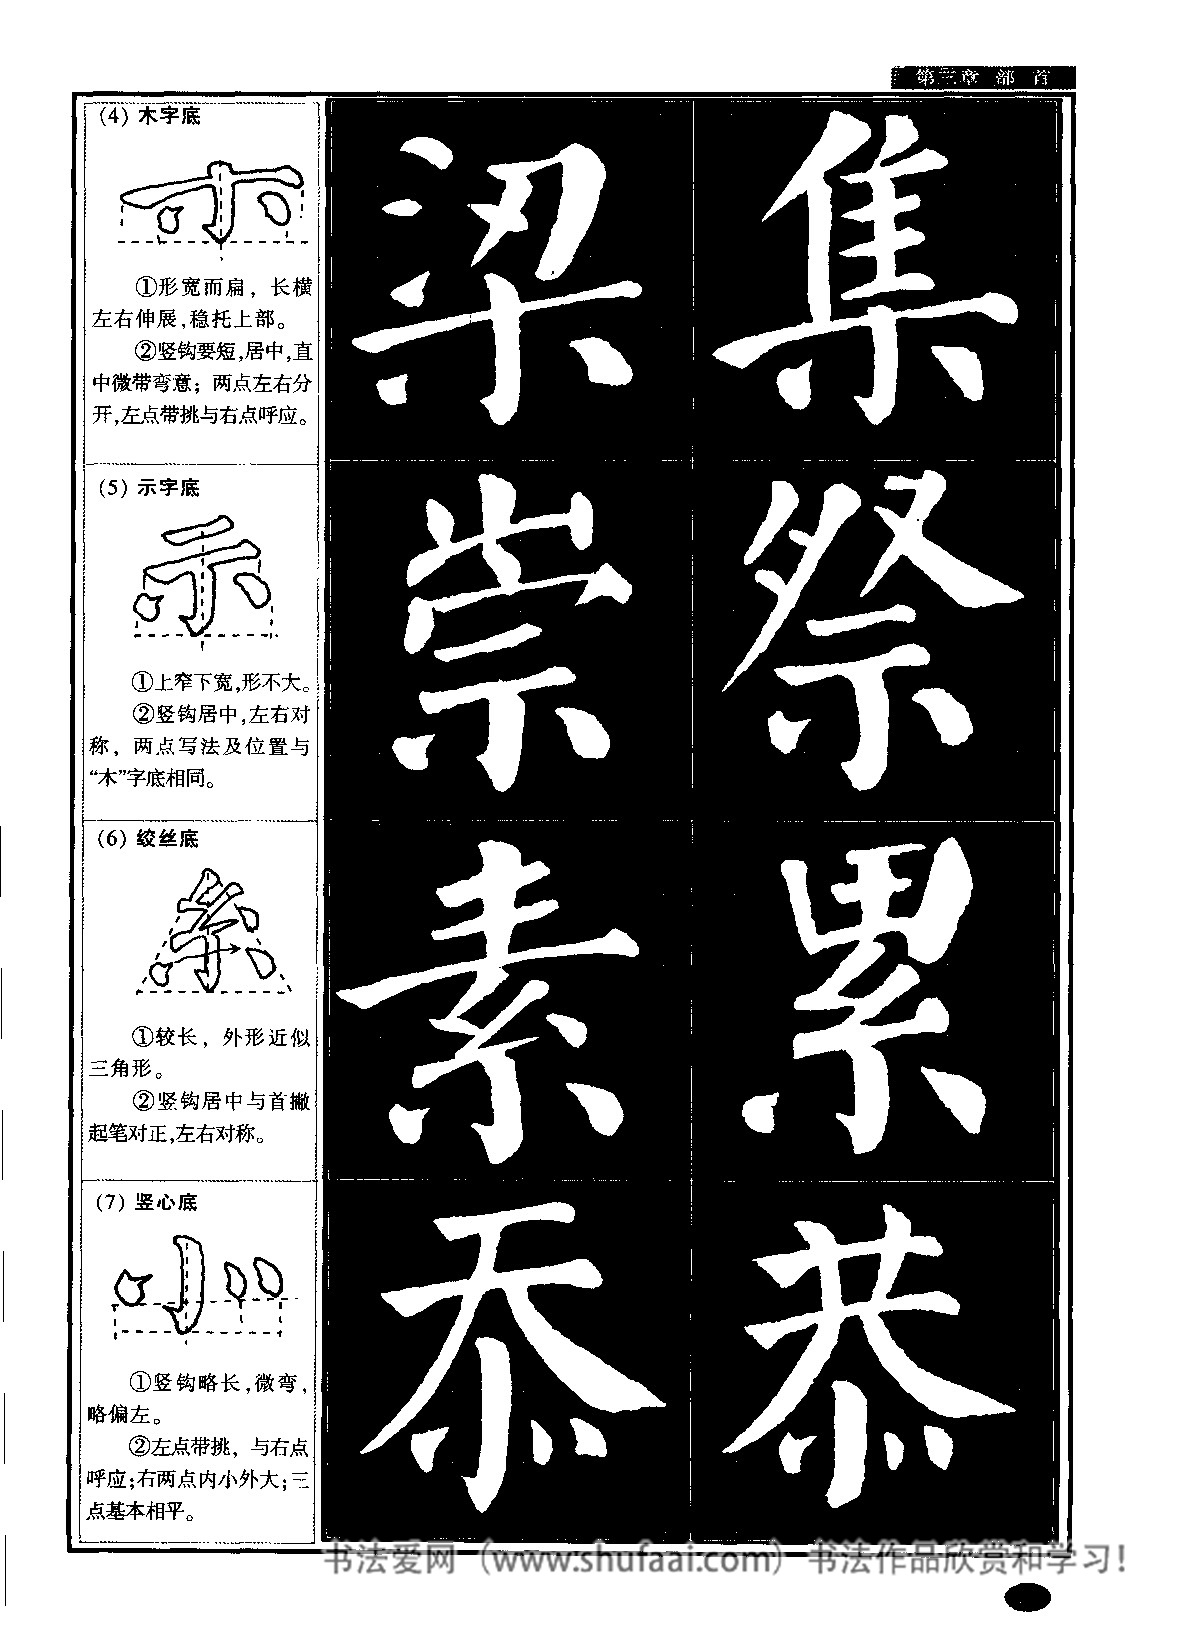 第三章 部 首
(4) 木字底
①形宽而扁，长横
左右伸展,稳托上部。
②竖钩要短,居中,直
中微带弯意；两点左右分
开,左点带挑与右点呼应。
梁 集
(5) 示字底
①上窄下宽,形不大。
②竖钩居中,左右对
称，两点写法及位置与
“木”字底相同。
崇 祭
(6) 绞丝底
①较长，外形近似
三角形。
②竖钩居中与首撇
起笔对正,左右对称。
素 累
(7) 竖心底
①竖钩略长,微弯,
略偏左。
②左点带挑，与右点
呼应;右两点内小外大;三
点基本相平。
忝 恭
书法爱网（www.shufaai.com）书法作品欣赏和学习！